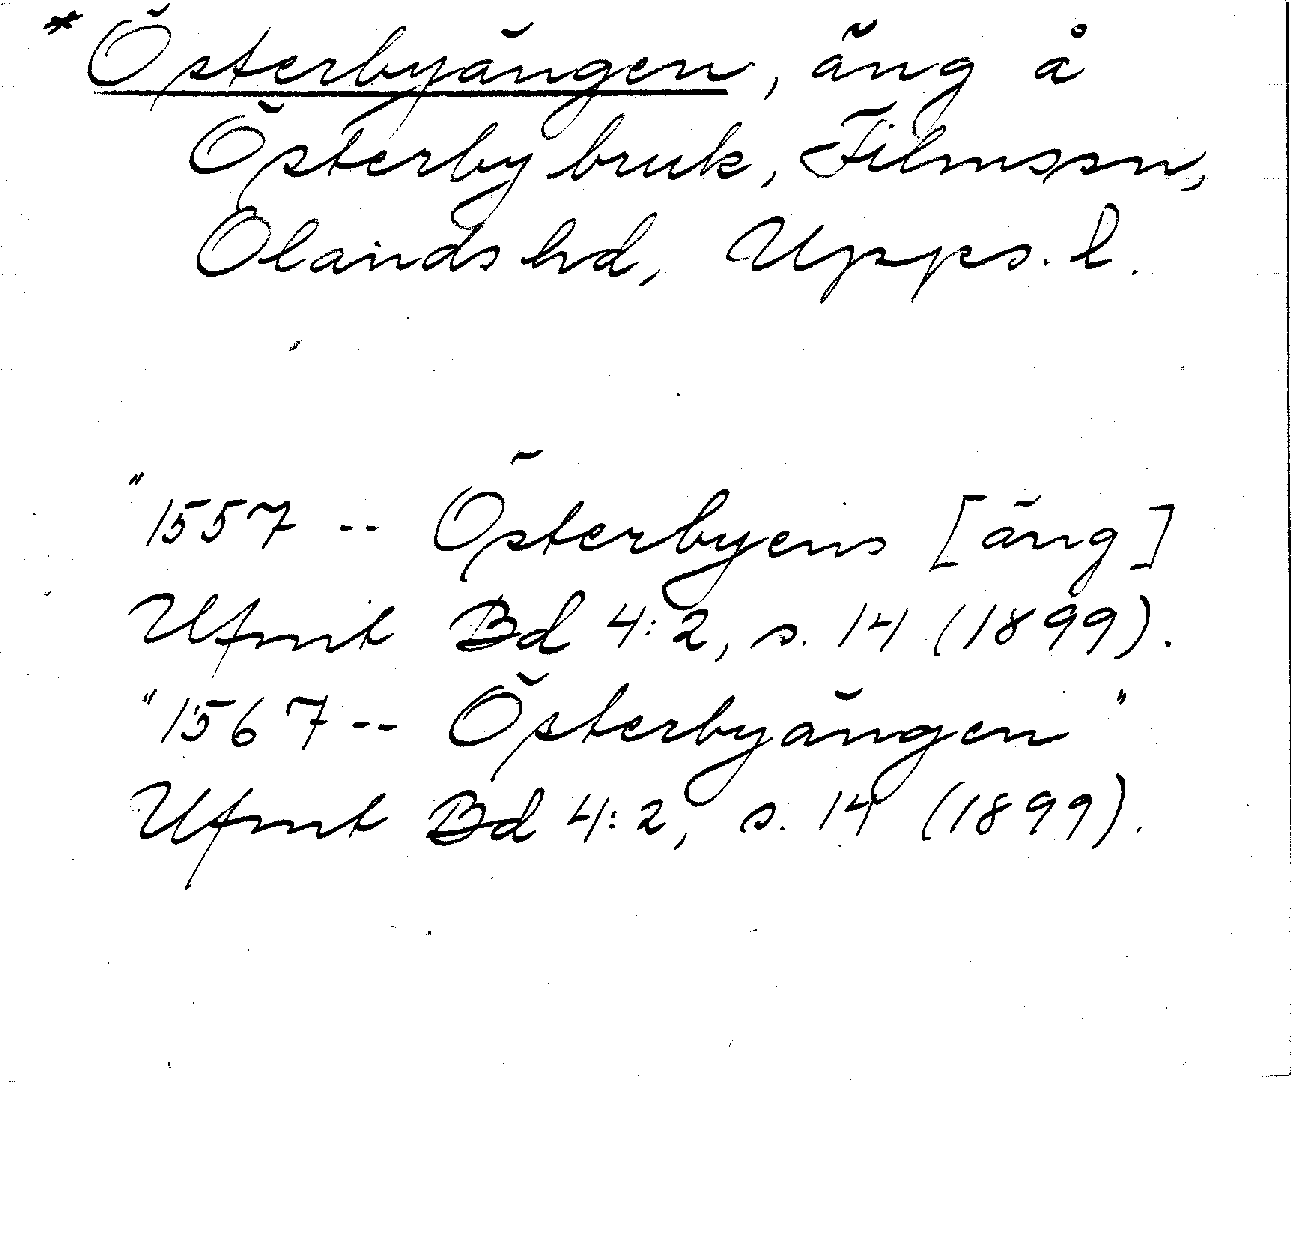 * Österbyängen, äng å
Österby bruk, Filmssn,
Olands hd, Upps. l.
"1557 -- Österbyens [äng]
Ufmt Bd 4:2, s. 14 (1899).
"1567 -- Österbyängen"
Ufmt Bd 4:2, s. 14 (1899).